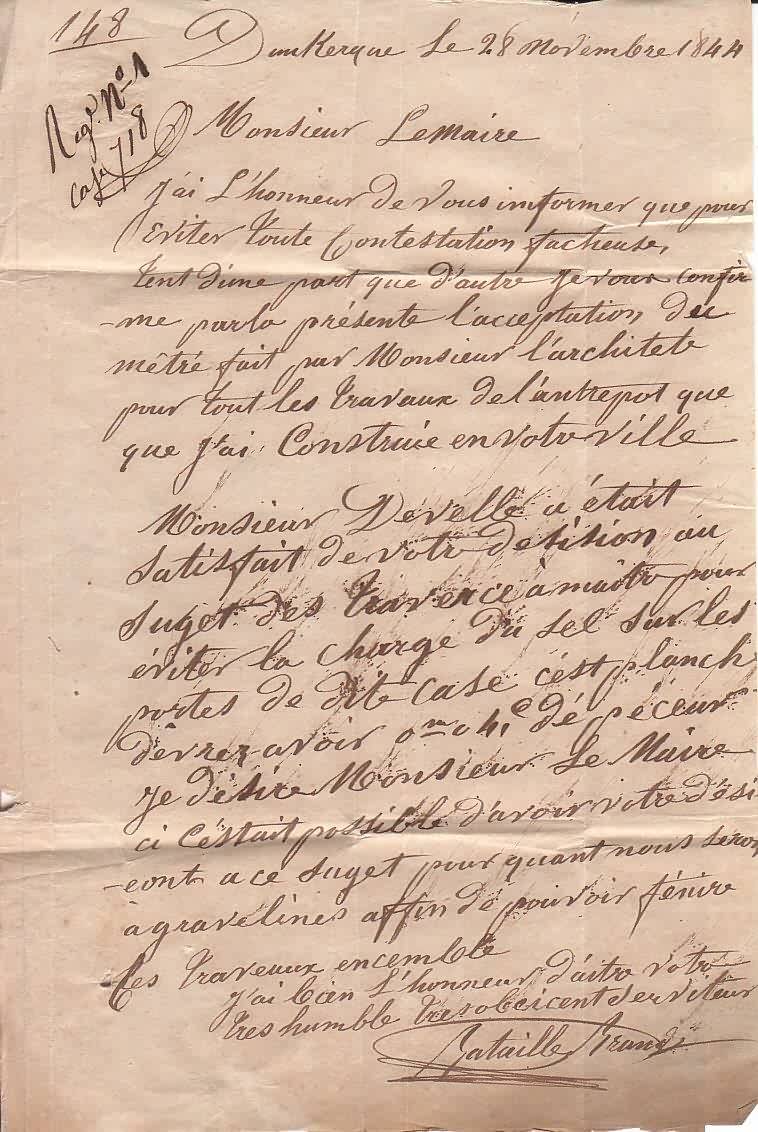 148
Dunkerque Le 28 Novembre 1844
Reg. N° 1
case 718
Monsieur LeMaire
J'ai L'honneur de Vous imformer que pour
Eviter toute Contestation facheuse,
tent d'une part que d'autre je vous confir
-me parla présente l'acceptation du
métré fait par Monsieur l'architete
pour tout les travaux de l'antrepot que
que j'ai Construie en votre ville
Monsieur Develle a était
Satisfait de votre desision au
suget des traverce à maitre pour
éviter la charge du sel sur les
portes de dite case c'est planch
devrez avoir 0m04c dé péceur
Je désire Monsieur Le Maire
ci c'était possible d'avoir votre dési
-cont a ce suget pour quant nous seron
à gravelines affin de pouvoir fénire
Ces traveaux encemble
J'ai bien L'honneur d'aitre votre
tres humble tres obeicent serviteur
Bataille